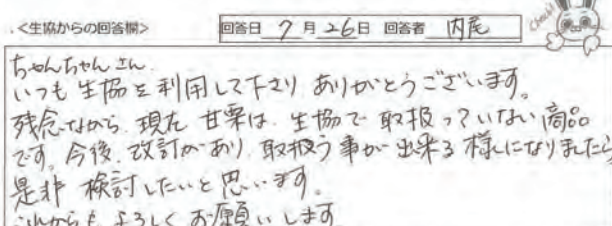 .<生協からの回答欄>
回答日 7月26日 回答者 内尾
Check!
ちゃんちゃんさん.
いつも生協を利用して下さり ありがとうございます。
残念ながら、現在 甘栗は、生協で 取扱っていない商品
です。今後、改訂があり、取扱う事が出来る様になりましたら
是非 検討したいと思います。
これからも よろしくお願いします